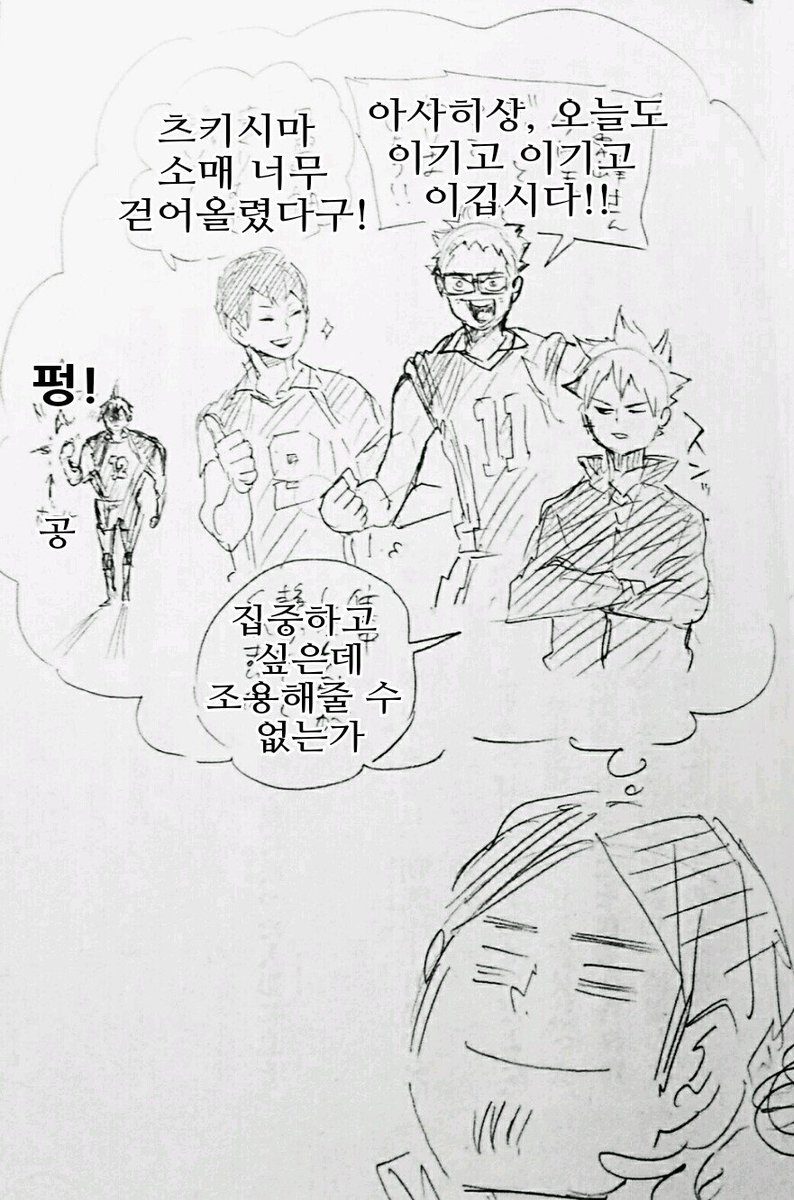 츠키시마
소매 너무
걷어올렸다구!
아사히상, 오늘도
이기고 이기고
이깁시다!!
펑!
공
12
9
11
집중하고
싶은데
조용해줄 수
없는가